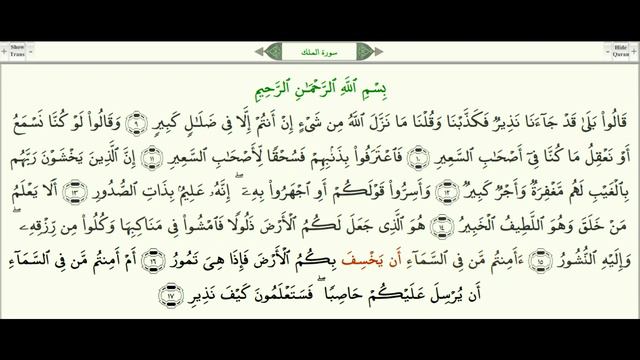 Show Trans
سورة الملك
Hide Quran
بِسْمِ ٱللَّهِ ٱلرَّحْمَـٰنِ ٱلرَّحِيمِ
قَالُوا۟ بَلَىٰ قَدْ جَآءَنَا نَذِيرٌ فَكَذَّبْنَا وَقُلْنَا مَا نَزَّلَ ٱللَّهُ مِن شَىْءٍ إِنْ أَنتُمْ إِلَّا فِى ضَلَـٰلٍ كَبِيرٍ ٩ وَقَالُوا۟ لَوْ كُنَّا نَسْمَعُ
أَوْ نَعْقِلُ مَا كُنَّا فِىٓ أَصْحَـٰبِ ٱلسَّعِيرِ ١٠ فَٱعْتَرَفُوا۟ بِذَنۢبِهِمْ فَسُحْقًا لِّأَصْحَـٰبِ ٱلسَّعِيرِ ١١ إِنَّ ٱلَّذِينَ يَخْشَوْنَ رَبَّهُم
بِٱلْغَيْبِ لَهُم مَّغْفِرَةٌ وَأَجْرٌ كَبِيرٌ ١٢ وَأَسِرُّوا۟ قَوْلَكُمْ أَوِ ٱجْهَرُوا۟ بِهِۦٓ ۖ إِنَّهُۥ عَلِيمٌۢ بِذَاتِ ٱلصُّدُورِ ١٣ أَلَا يَعْلَمُ
مَنْ خَلَقَ وَهُوَ ٱللَّطِيفُ ٱلْخَبِيرُ ١٤ هُوَ ٱلَّذِى جَعَلَ لَكُمُ ٱلْأَرْضَ ذَلُولًا فَٱمْشُوا۟ فِى مَنَاكِبِهَا وَكُلُوا۟ مِن رِّزْقِهِۦ ۖ
وَإِلَيْهِ ٱلنُّشُورُ ١٥ ءَأَمِنتُم مَّن فِى ٱلسَّمَآءِ أَن يَخْسِفَ بِكُمُ ٱلْأَرْضَ فَإِذَا هِىَ تَمُورُ ١٦ أَمْ أَمِنتُم مَّن فِى ٱلسَّمَآءِ
أَن يُرْسِلَ عَلَيْكُمْ حَاصِبًا ۖ فَسَتَعْلَمُونَ كَيْفَ نَذِيرِ ١٧